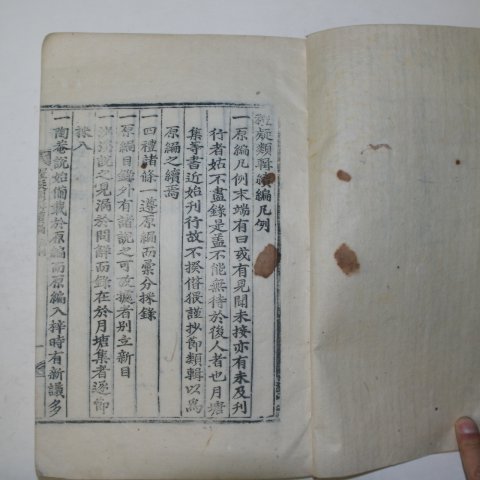 疑類輯續編凡例
一原編凡例末端有曰或有見聞未接亦有未及刊
行者姑不盡錄是盖不能無待於後人者也月塘
集等書近始刊行故不揆僣猥謹抄節類輯以爲
原編之續焉
一四禮諸條一遵原編而彙分採錄
一原編目錄外有諸說之可攷據者別立新目
說之見漏於問辭而錄在於月塘集者逐節
採入
一陶菴說始備載於原編而原編入梓時有新議多